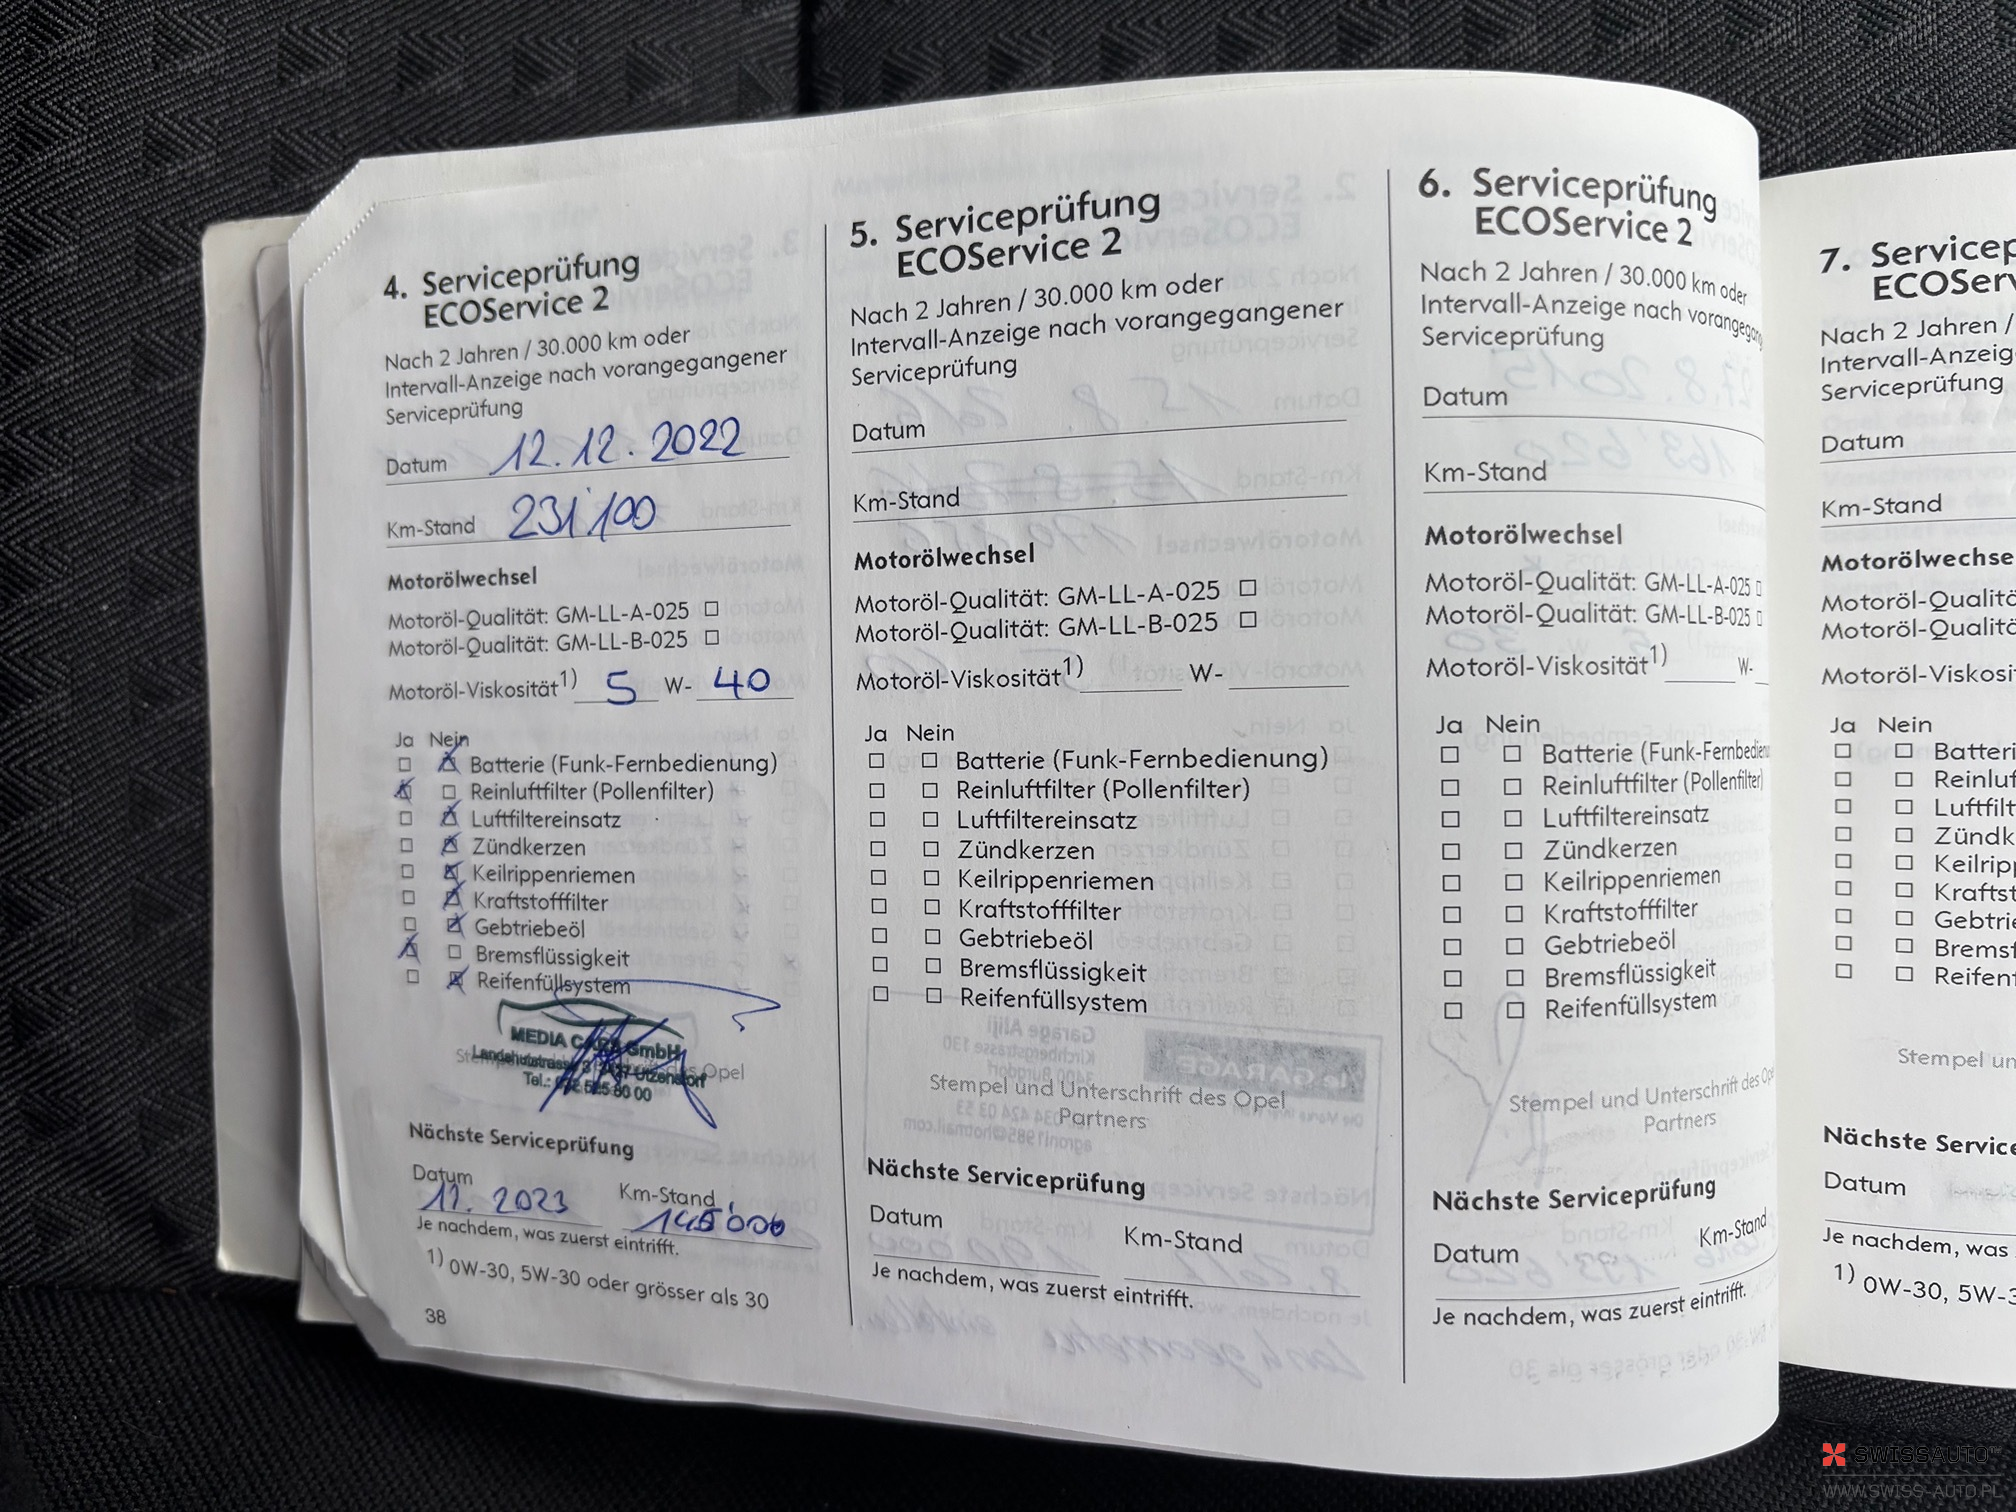 4. Serviceprüfung
ECOService 2
Nach 2 Jahren / 30.000 km oder
Intervall-Anzeige nach vorangegangener
Serviceprüfung
Datum 12.12.2022
Km-Stand 231'100
Motorölwechsel
Motoröl-Qualität: GM-LL-A-025 ☐
Motoröl-Qualität: GM-LL-B-025 ☐
Motoröl-Viskosität1) 5 W- 40
Ja Nein
Batterie (Funk-Fernbedienung)
Reinluftfilter (Pollenfilter)
Luftfiltereinsatz
Zündkerzen
Keilrippenriemen
Kraftstofffilter
Gebtriebeöl
Bremsflüssigkeit
Reifenfüllsystem
MEDIA CARS GmbH
Landshutstrasse 3427 Utzenstorf
Tel.: 032 525 80 00
des Opel
Nächste Serviceprüfung
Datum Km-Stand
2023
Je nachdem, was zuerst eintrifft.
1) 0W-30, 5W-30 oder grösser als 30
38
5. Serviceprüfung
ECOService 2
Nach 2 Jahren / 30.000 km oder
Intervall-Anzeige nach vorangegangener
Serviceprüfung
Datum
Km-Stand
Motorölwechsel
Motoröl-Qualität: GM-LL-A-025 ☐
Motoröl-Qualität: GM-LL-B-025 ☐
Motoröl-Viskosität1) W-
Ja Nein
Batterie (Funk-Fernbedienung)
Reinluftfilter (Pollenfilter)
Luftfiltereinsatz
Zündkerzen
Keilrippenriemen
Kraftstofffilter
Gebtriebeöl
Bremsflüssigkeit
Reifenfüllsystem
Stempel und Unterschrift des Opel
Partners
Nächste Serviceprüfung
Datum Km-Stand
Je nachdem, was zuerst eintrifft.
6. Serviceprüfung
ECOService 2
Nach 2 Jahren / 30.000 km oder
Intervall-Anzeige nach vorangegang
Serviceprüfung
Datum
Km-Stand
Motorölwechsel
Motoröl-Qualität: GM-LL-A-025 ☐
Motoröl-Qualität: GM-LL-B-025 ☐
Motoröl-Viskosität1) W-
Ja Nein
Batterie (Funk-Fernbedien
Reinluftfilter (Pollenfilter)
Luftfiltereinsatz
Zündkerzen
Keilrippenriemen
Kraftstofffilter
Gebtriebeöl
Bremsflüssigkeit
Reifenfüllsystem
Stempel und Unterschrift des Ope
Partners
Nächste Serviceprüfung
Datum Km-Stand
Je nachdem, was zuerst eintrifft.
7. Servicep
ECOServ
Nach 2 Jahren /
Intervall-Anzeig
Serviceprüfung
Datum
Km-Stand
Motorölwechse
Motoröl-Qualitä
Motoröl-Qualitä
Motoröl-Viskosit
Ja Nein
Batteri
Reinluf
Luftfilt
Zündk
Keilrip
Krafts
Gebtrie
Bremsf
Reifen
Stempel un
Nächste Service
Datum
Je nachdem, was
1) 0W-30, 5W-3
SWISSAUTO
WWW.SWISS-AUTO.PL